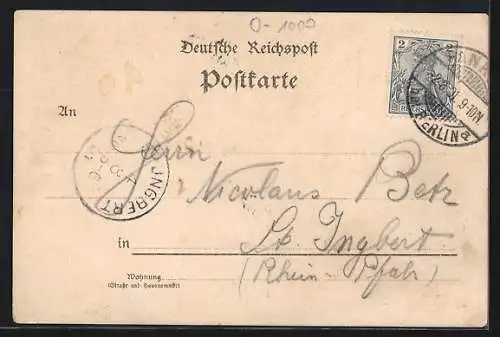 O-1000
Deutsche Reichspost
Postkarte
2
9-10N
BERLIN
An
INGBERT
Herrn
Nicolaus Betz
in St. Ingbert
(Rhein-Pfalz)
Wohnung
(Straße und Hausnummer)